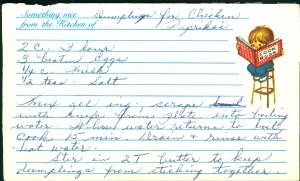 Something nice Dumplings for Chicken
from the Kitchen of . . . Paprikas
2 C. Flour
3 beaten Eggs
1/4 c. Milk
1/2 teas. Salt
Mix all ing. scrape
with knife from plate into boiling
water. When water returns to boil
cook 15 min. Drain & rinse with
hot water.
Stir in 2T butter to keep
dumplings from sticking together.
COOK BOOK